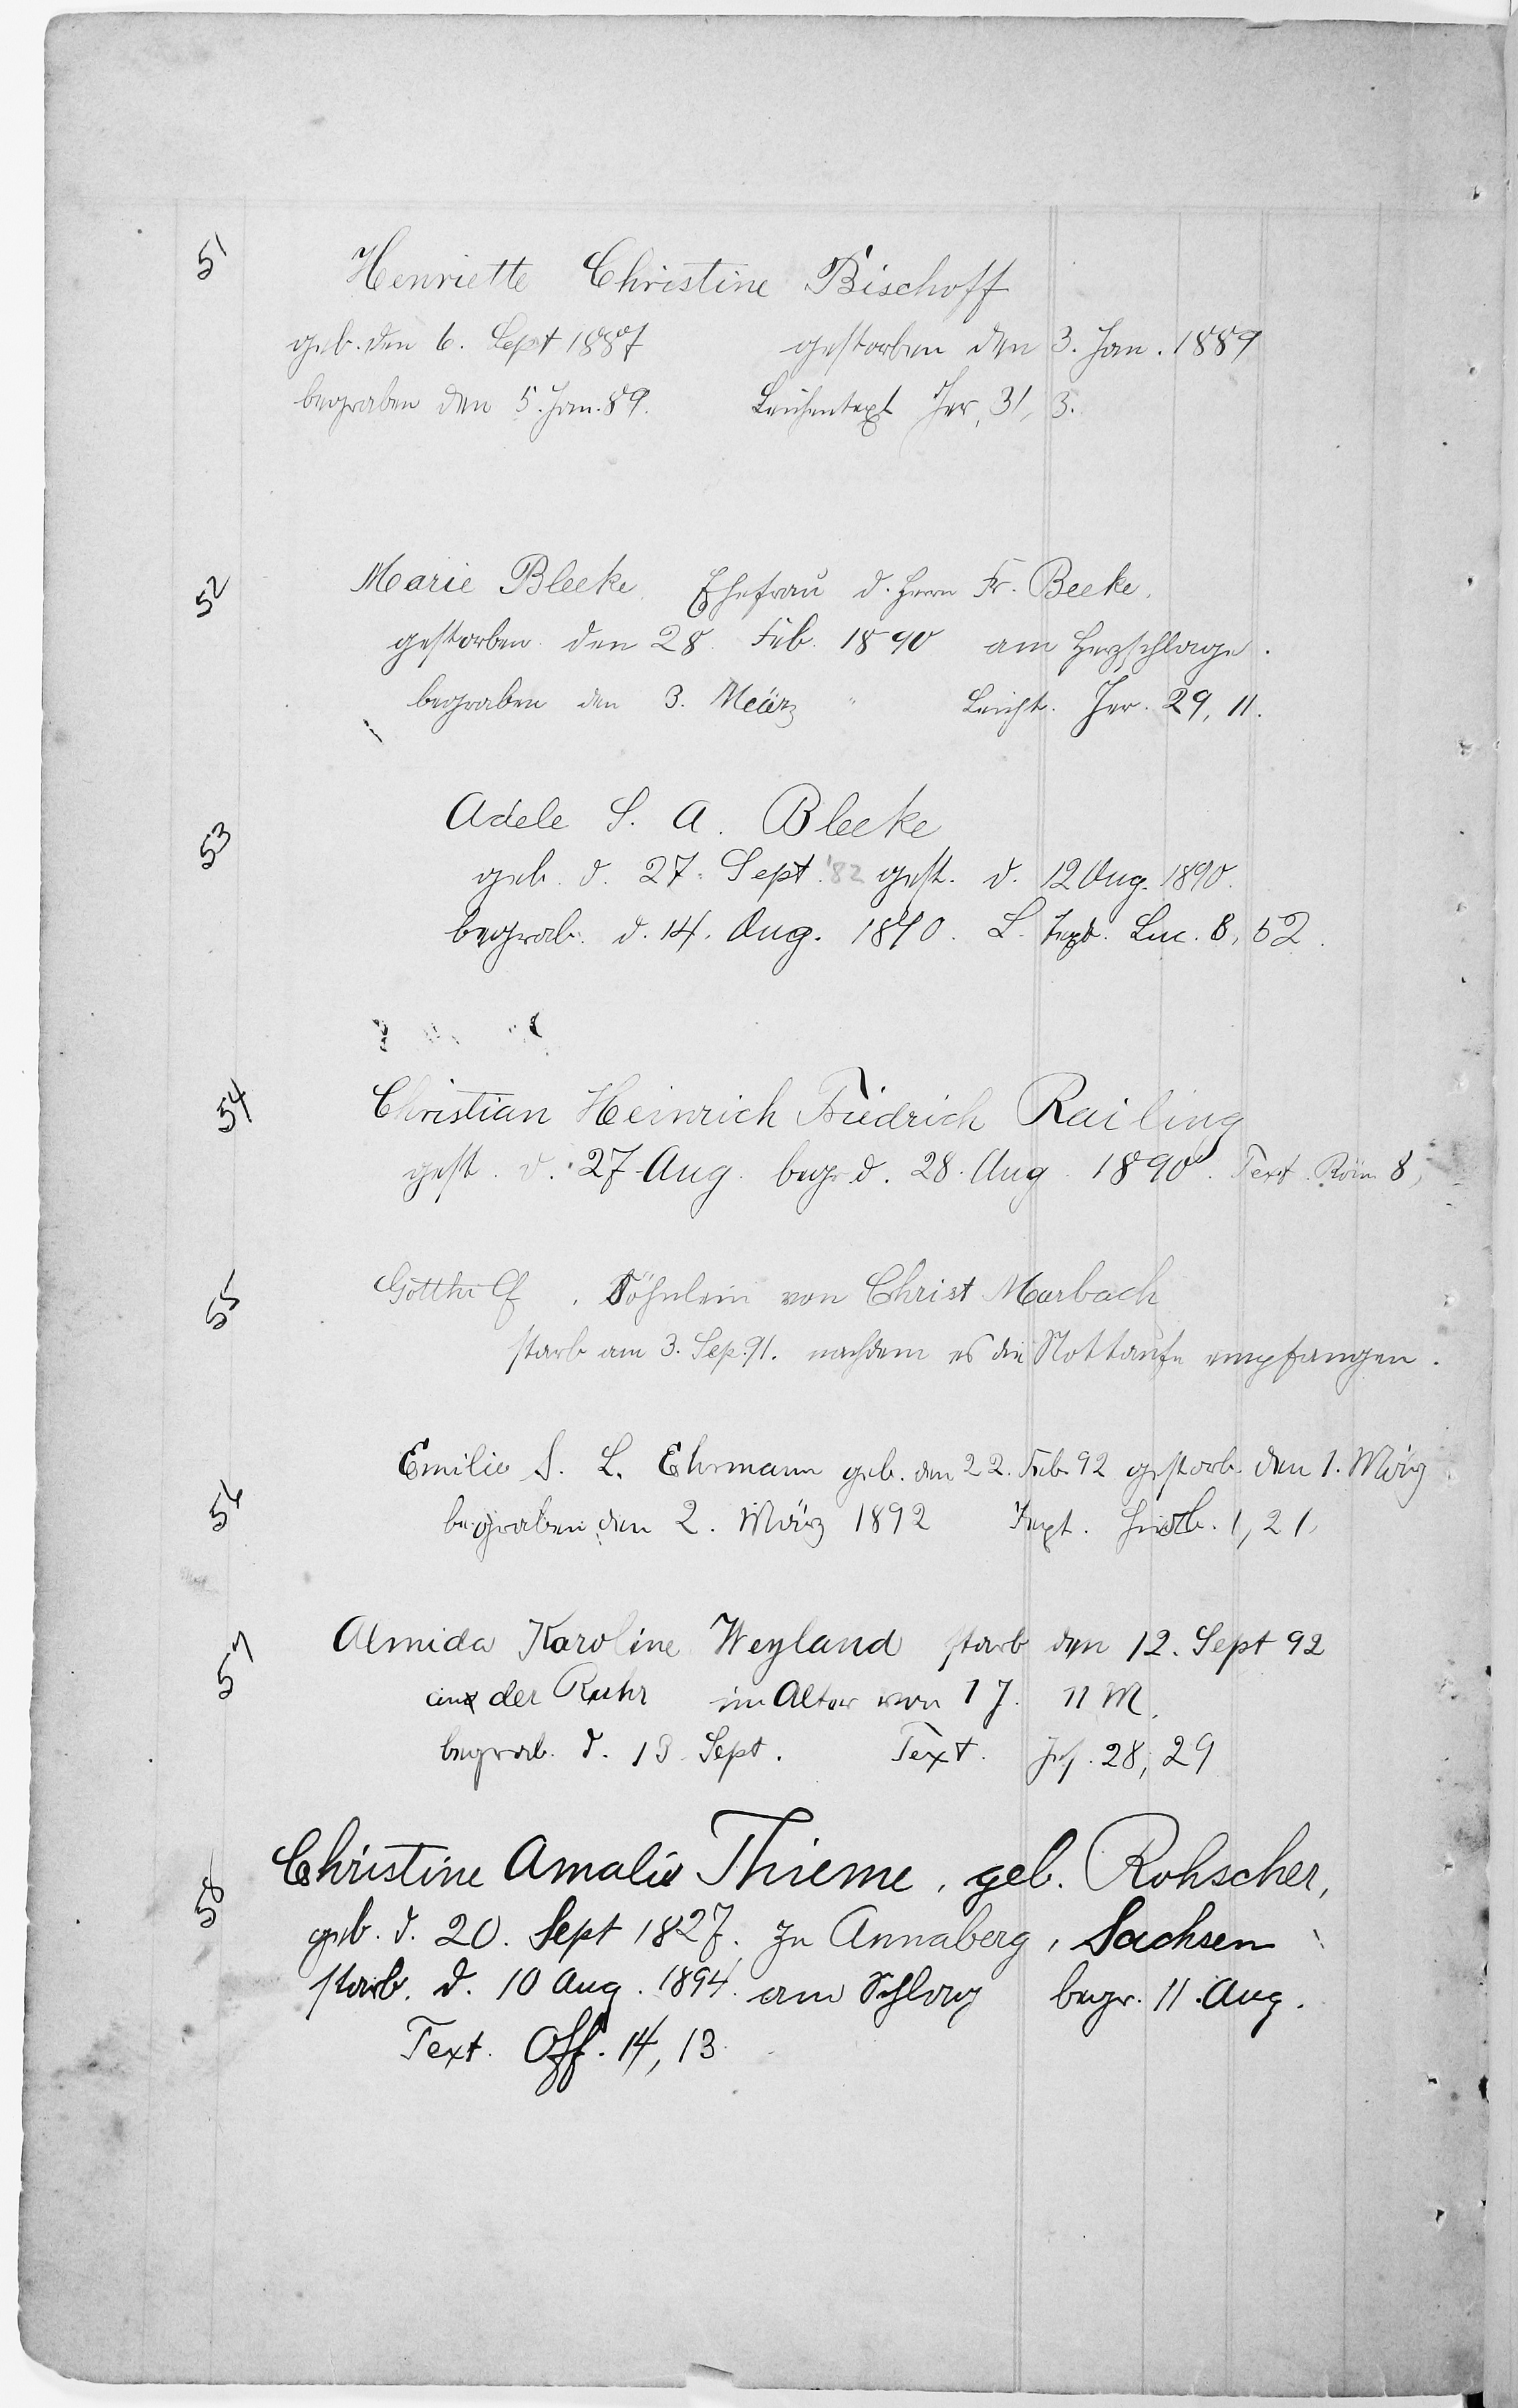 51 Henriette Christine Bischoff
geb. den 6. Sept 1887 gestorben den 3. Jan. 1889
begraben den 5. Jan. 89. Leichentext Jer. 31, 3.
52 Marie Bleeke, Ehefrau d. Herrn Fr. Beeke.
gestorben den 28 Feb. 1890 am Herzschlage.
begraben den 3. März " Leicht. Jer. 29, 11.
53 Adele S. A. Bleeke
geb. d. 27. Sept. '82 gest. d. 12 Aug. 1890.
begrab. d. 14. Aug. 1890. L. Text. Luc. 8, 52.
54 Christian Heinrich Friedrich Railing
gest. d. 27 Aug. begr. d. 28. Aug. 1890. Text. Röm 8,
55 Gotthilf, Söhnlein von Christ Marbach
starb am 3. Sep. 91. nachdem es die Nottaufe empfangen.
56 Emilie S. L. Ehrmann geb. den 22. Feb. 92 gestorb. den 1. März
begraben den 2. März 1892 Text. Hiob. 1, 21,
57 Almida Karoline Weyland starb den 12. Sept 92
an der Ruhr im Alter von 1 J. 11 M.
begrab. d. 13. Sept. Text. Jes. 28, 29
58 Christine Amalie Thieme, geb. Rohscher,
geb. d. 20. Sept 1827. zu Annaberg, Sachsen
starb. d. 10 Aug. 1894. am Schlag begr. 11. Aug.
Text. Off. 14, 13.